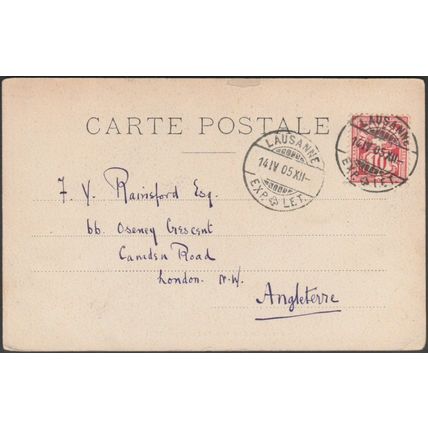 CARTE POSTALE
LAUSANNE
14 IV 05 XII-
EXP. LET.
LAUSANNE
14 IV 05 XII-
EXP. LET.
10
F. V. Rainsford Esq.
66 Oseney Crescent
Camden Road
London. N.W.
Angleterre